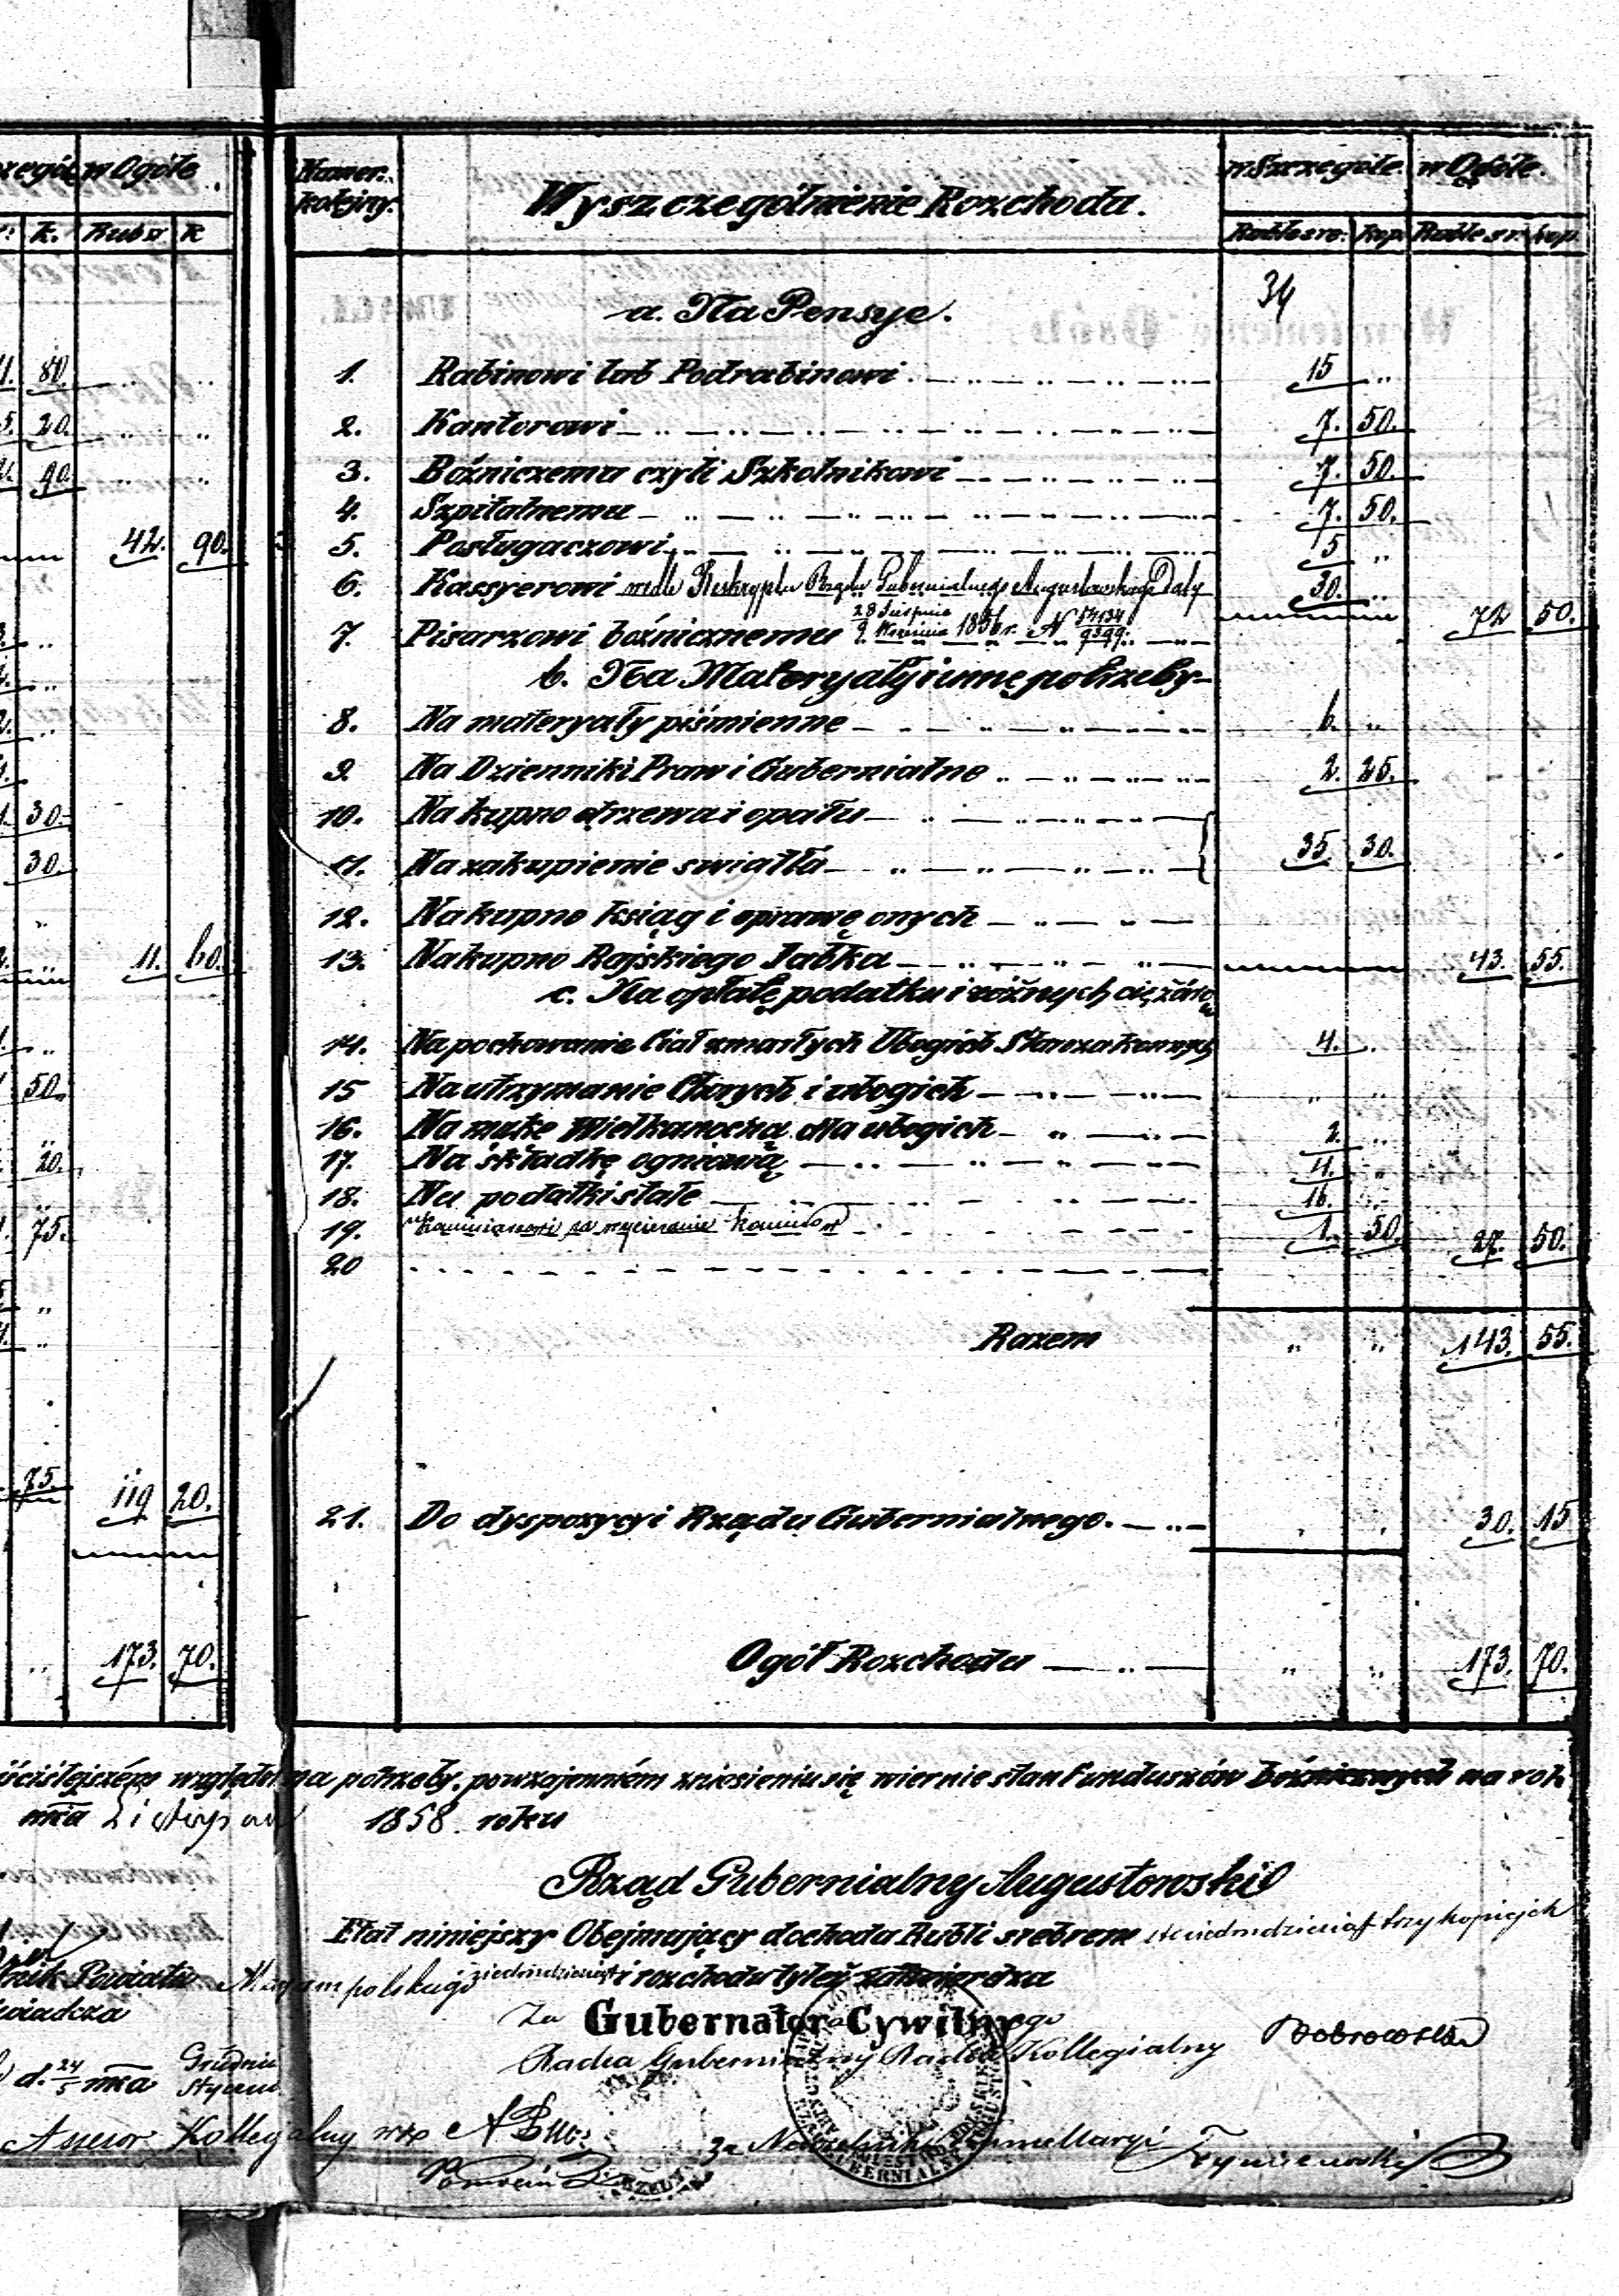 w Ogóle
K. Rub sr K
80.
20.
90.
42. 90.
30.
30.
11. 60.
50.
20.
75.
75.
119 20.
173. 70.
Numer. kolejny. Wyszczególnienie Rozchodu. w Szczególe. w Ogóle.
Ruble sre. Kop. Ruble sr. kop.
34
a. Na Pensye.
1. Rabinowi lub Podrabinowi 15 ..
2. Kantorowi 7. 50.
3. Bóżniczemu czyli Szkolnikowi 7. 50.
4. Szpitalnemu 7. 50.
5. Posługaczowi 5 ..
6. Kassyerowi wedle Reskryptu Rządu Gubernialnego Augustowskiego Daty 30. ..
28 Sierpnia
7. Pisarzowi bóźnicznemu 9 Września 1856 r. N 54134/9399. 72 50.
b. Na Materyały i inne potrzeby
8. Na materyały piśmienne 6. ..
9. Na Dzienniki Praw i Gubernialne 2. 25.
10. Na kupno drzewa i opału
11. Na zakupienie swiatła 35. 30.
12. Na kupno ksiąg i oprawę onych
13. Na kupno Rajskiego Jabka 43. 55.
c. Na opłatę podatku i różnych ciężarów
14. Na pochowanie Ciał zmarłych Ubogich Starozakonnych 4. ..
15 Na utrzymanie Chorych i ubogich .. ..
16. Na mąkę Wielkanocną dla ubogich 2. ..
17. Na składkę ogniową 4. ..
18. Na podatki stałe 16. ..
19. Kominiarzowi za wycieranie kominów 1. 50. 27. 50.
20
Razem .. .. 143. 55.
21. Do dyspozycyi Rządu Gubernialnego. 30. 15
Ogół Rozchodu .. .. 173. 70.
ściślejszém względem na potrzeby. po wzajemném zniesieniu się wiernie stan Funduszów bóźnicznych na rok
nia Listopada 1858. roku
Rząd Gubernialny Augustowski
Etat niniejszy Obejmujący dochodu Rubli srebrem sto siedmdziesiąt trzy kopiejek
siedmdziesiąt i rozchodu tyleż zatwierdza
lnik Powiatu Maryampolskiego
wiadcza
Za Gubernator Cywilnego
Radca Gubernialny Radca Kollegialny Dobrowolski
d. 24/5 mca Grudnia
Stycznia
Assesor Kollegialny
Za Naczelnika Kancellaryi